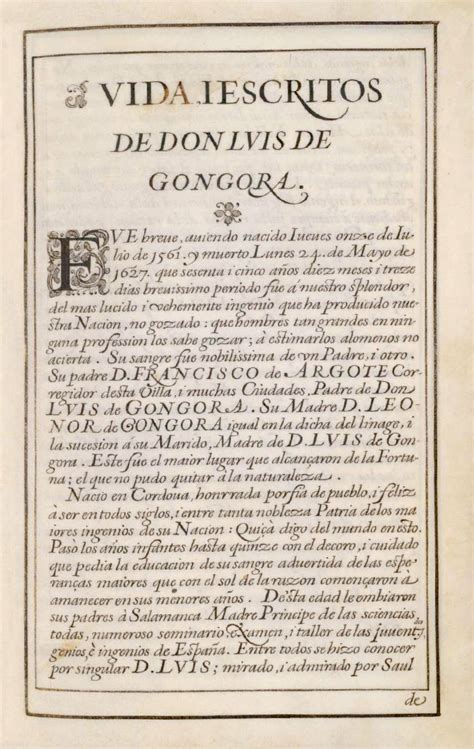 VIDA, I ESCRITOS
DE DON LVIS DE
GONGORA.
FVE breve, auiendo nacido Iueves onze de Iu-
lio de 1561. y muerto Lunes 24. de Mayo de
1627. que sesenta i cinco años diez meses i trezze
dias brevissimo periodo fùe à nuestro splendor,
del mas lucido i vehemente ingenio que ha producido nue-
stra Nacion, no gozado: que hombres tan grandes en nin-
guna profession los sabe gozzar; à estimarlos alomenos no
acierta. Su sangre fùe nobilissima de vn Padre, i otro.
Su padre D. FRANCISCO de ARGOTE Cor-
regidor desta Villa, i muchas Ciudades, Padre de Don
LVIS de GONGORA. Su Madre D. LEO-
NOR de GONGORA igual en la dicha del linage, i
la sucesion à su Marido, Madre de D. LVIS de Gon-
gora. Este fùe el maior lugar que alcançaron de la Fortu-
na; el que no pudo quitar à la naturaleza.
Nacio en Cordoua, honrrada porfia de pueblo, i féliz
à ser en todos siglos, i entre tanta nobleza Patria de los ma
iores ingenios de su Nacion: Quiçà digo del mundo en ésto.
Paso los años infantes hasta quinze con el decoro, i cuidado
que pedia la educacion de su sangre advertida de las espe-
ranças maiores que con el sol de la ruzon començaron à
amanecer en sus menores años. Désta edad le embiaron
sus padres à Salamanca Madre Principe de las sciencias
todas, numeroso seminario, examen, i taller de las juuent
genios, è ingenios de España. Entre todos se hizzo conocer
por singular D. LVIS; mirado, i admirado por Saul
de